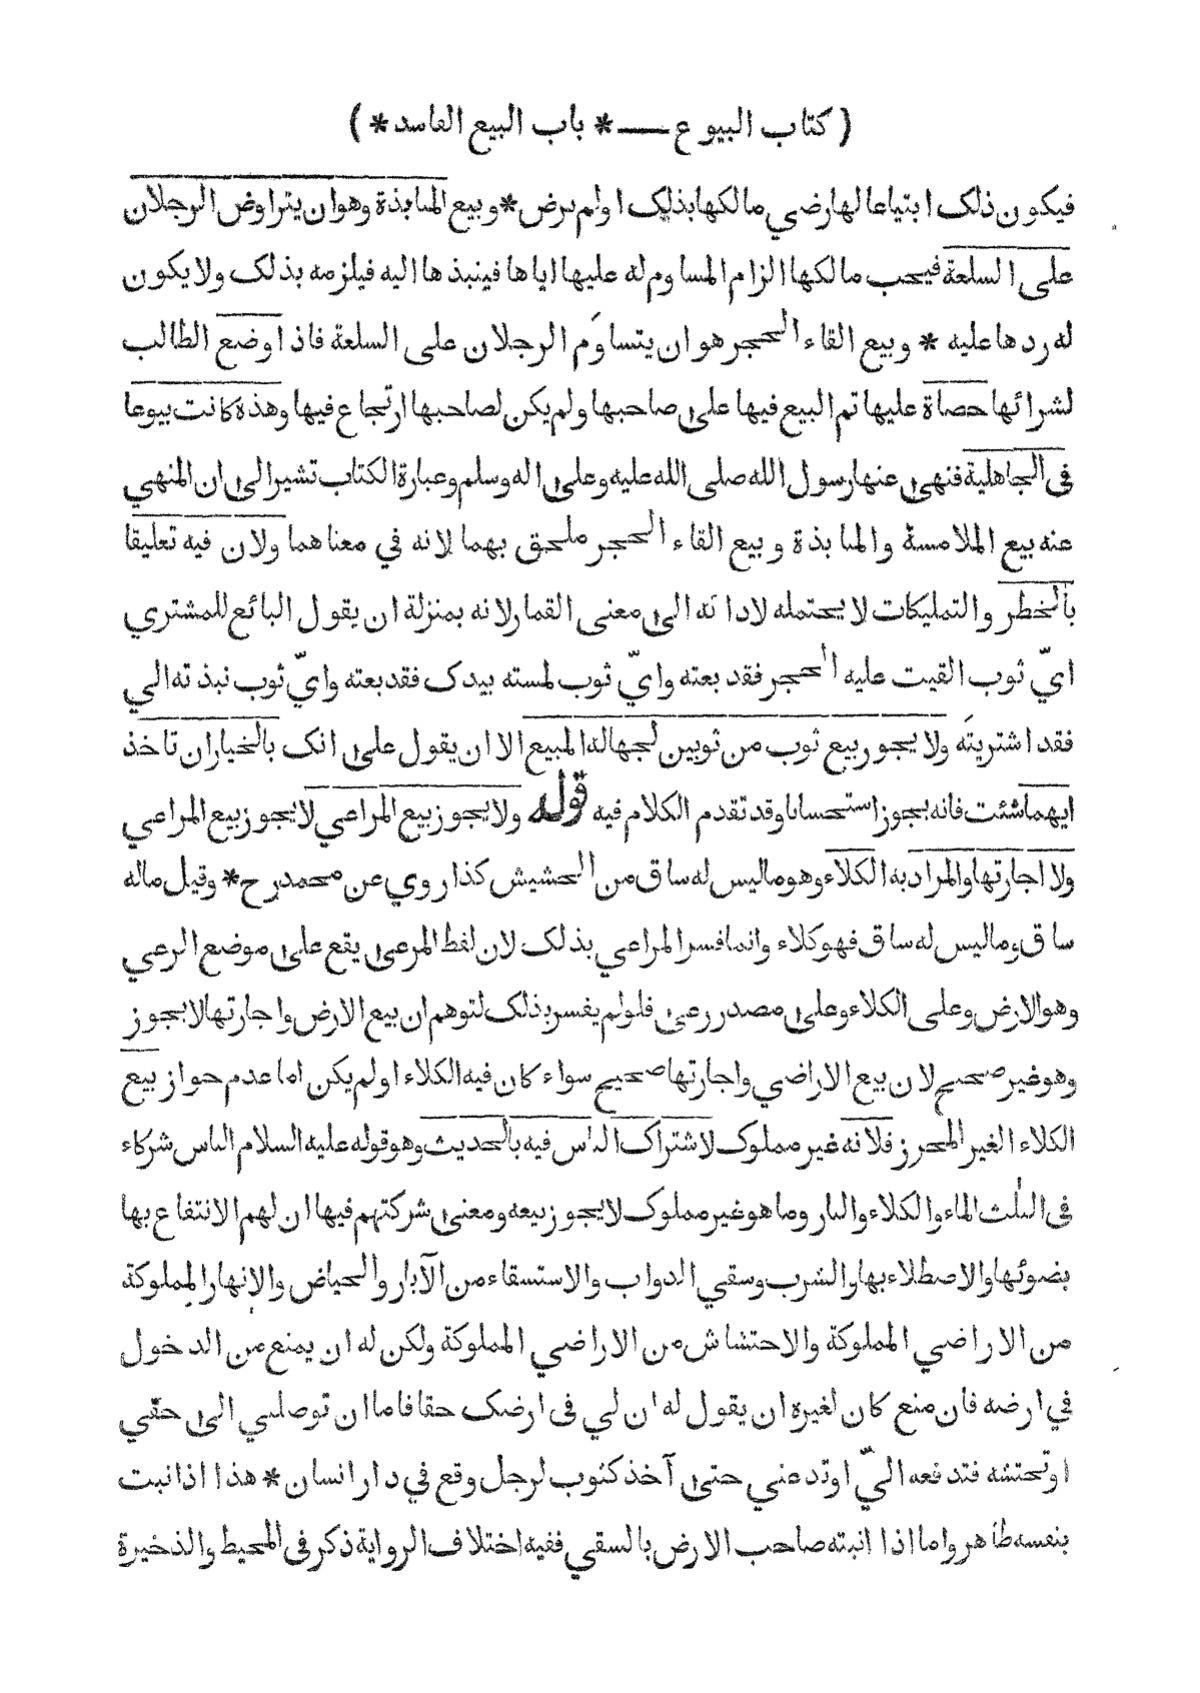 ( كتاب البيوع — * باب البيع الفاسد * )
فيكون ذلك ابتياعا لها رضي مالكها بذلك اولم يرض * وبيع المنابذة وهو ان يتراوض الرجلان
على السلعة فيحب مالكها الزام المساوم له عليها اياها فينبذها اليه فيلزمه بذلك ولا يكون
له ردها عليه * وبيع القاء الحجر هو ان يتساوَم الرجلان على السلعة فاذا وضع الطالب
لشرائها حصاة عليها تم البيع فيها على صاحبها ولم يكن لصاحبها ارتجاع فيها وهذه كانت بيوعا
فى الجاهلية فنهى عنها رسول الله صلى الله عليه وعلى اله وسلم وعبارة الكتاب تشير الى ان المنهي
عنه بيع الملامسة والمنابذة وبيع القاء الحجر ملحق بهما لانه في معناهما ولان فيه تعليقا
بالخطر والتمليكات لا يحتمله لادائه الى معنى القمار لانه بمنزلة ان يقول البائع للمشتري
ايّ ثوب القيت عليه الحجر فقد بعته وايّ ثوب لمسته بيدك فقد بعته وايّ ثوب نبذته الي
فقد اشتريتَه ولا يجوز بيع ثوب من ثوبين لجهالة المبيع الا ان يقول على انك بالخيار ان تاخذ
ايهما شئت فانه يجوز استحسانا وقد تقدم الكلام فيه قوله ولا يجوز بيع المراعي لا يجوز بيع المراعي
ولا اجارتها والمراد به الكلاء وهو ما ليس له ساق من الحشيش كذا روي عن محمد رح * وقيل ماله
ساق وما ليس له ساق فهو كلاء وانما فسر المراعي بذلك لان لفظ المرعى يقع على موضع الرعي
وهو الارض وعلى الكلاء وعلى مصدر رعى فلو لم يفسر بذلك لتوهم ان بيع الارض واجارتها لا يجوز
وهو غير صحيح لان بيع الاراضي واجارتها صحيح سواء كان فيه الكلاء او لم يكن اما عدم جواز بيع
الكلاء الغير المحرز فلانه غير مملوك لاشتراك الناس فيه بالحديث وهو قوله عليه السلام الناس شركاء
فى الثلث الماء والكلاء والنار وما هو غير مملوك لا يجوز بيعه ومعنى شركتهم فيها ان لهم الانتفاع بها
بضوئها والاصطلاء بها والشرب وسقي الدواب والاستسقاء من الآبار والحياض والانهار المملوكة
من الاراضي المملوكة والاحتشاش من الاراضي المملوكة ولكن له ان يمنع من الدخول
في ارضه فان منع كان لغيره ان يقول له ان لي فى ارضك حقا فاما ان توصلني الى حقّي
او تحتشه فتدفعه اليّ او تدعني حتى آخذ كثوب لرجل وقع في دار انسان * هذا اذا نبت
بنفسه ظاهر واما اذا انبته صاحب الارض بالسقي ففيه اختلاف الرواية ذكر فى المحيط والذخيرة